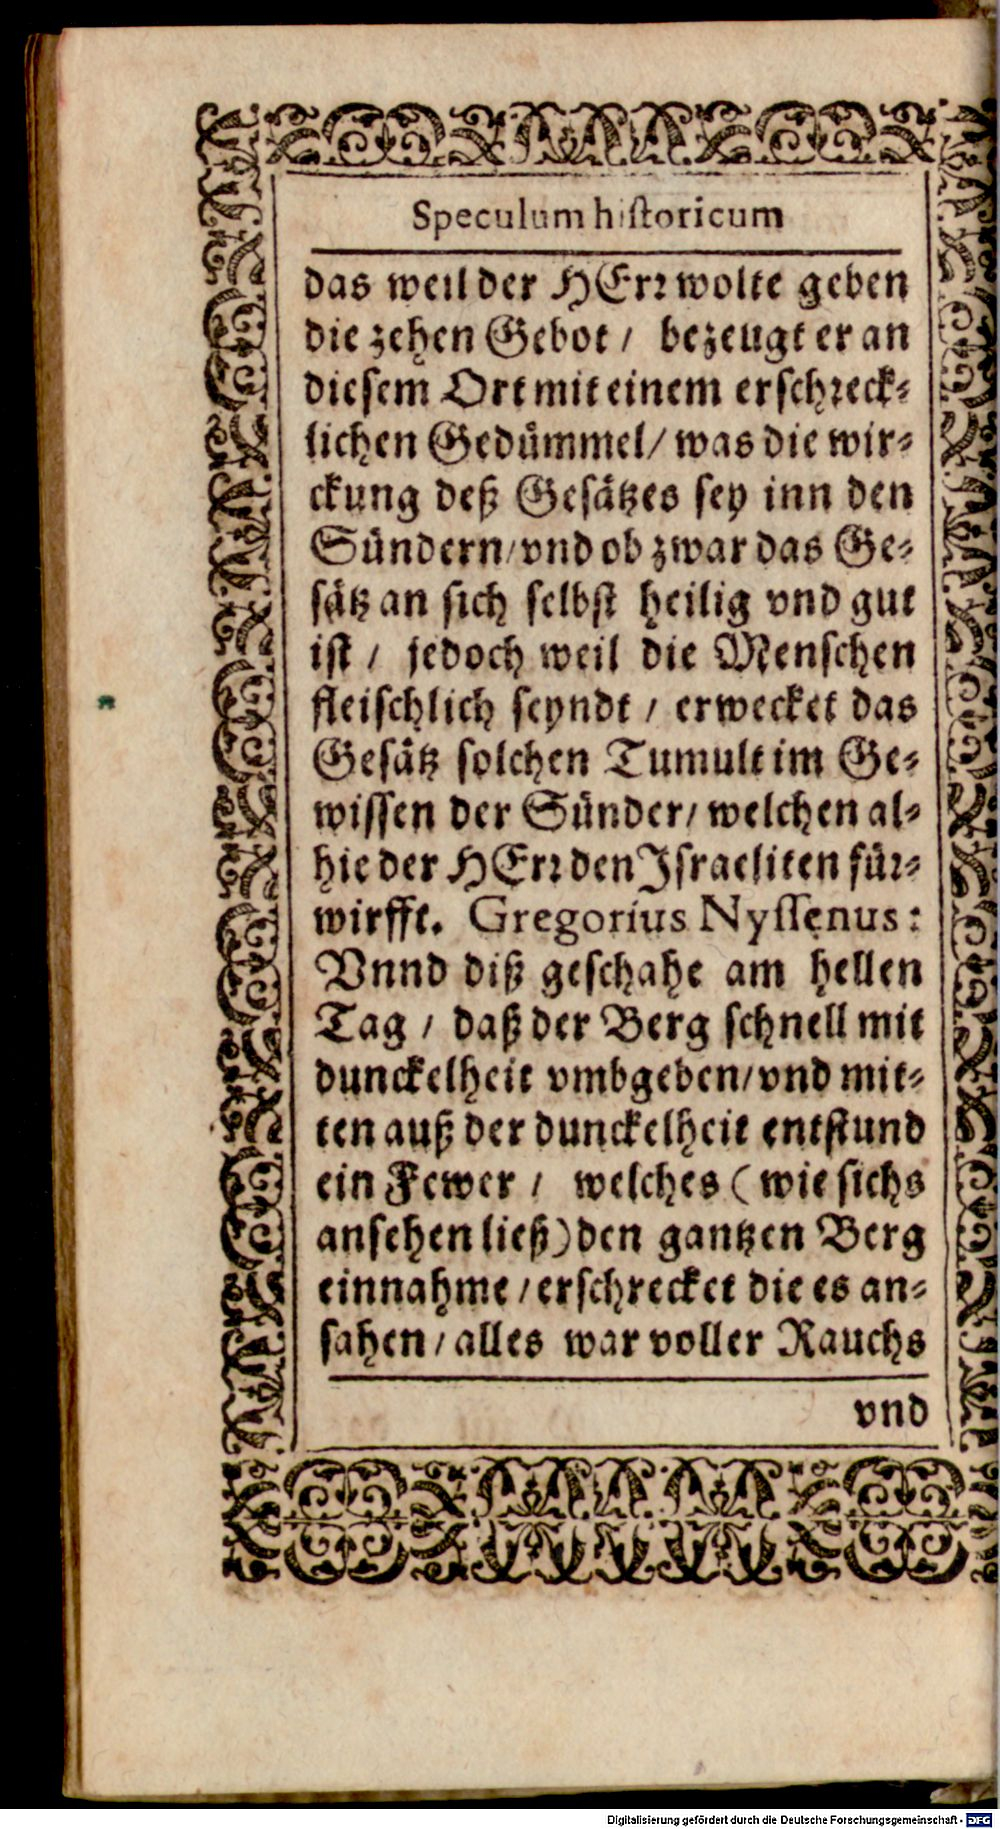 Speculum historicum
das weil der HErr wolte geben
die zehen Gebot / bezeugt er an
diesem Ort mit einem erschreck-
lichen Gedümmel / was die wir-
ckung deß Gesätzes sey inn den
Sündern / vnd ob zwar das Ge-
sätz an sich selbst heilig vnd gut
ist / jedoch weil die Menschen
fleischlich seyndt / erwecket das
Gesätz solchen Tumult im Ge-
wissen der Sünder / welchen al-
hie der HErr den Israeliten für-
wirfft. Gregorius Nyssenus:
Vnnd diß geschahe am hellen
Tag / daß der Berg schnell mit
dunckelheit vmbgeben / vnd mit-
ten auß der dunckelheit entstund
ein Fewer / welches (wie sichs
ansehen ließ) den gantzen Berg
einnahme / erschrecket die es an-
sahen / alles war voller Rauchs
vnd
Digitalisierung gefördert durch die Deutsche Forschungsgemeinschaft - DFG